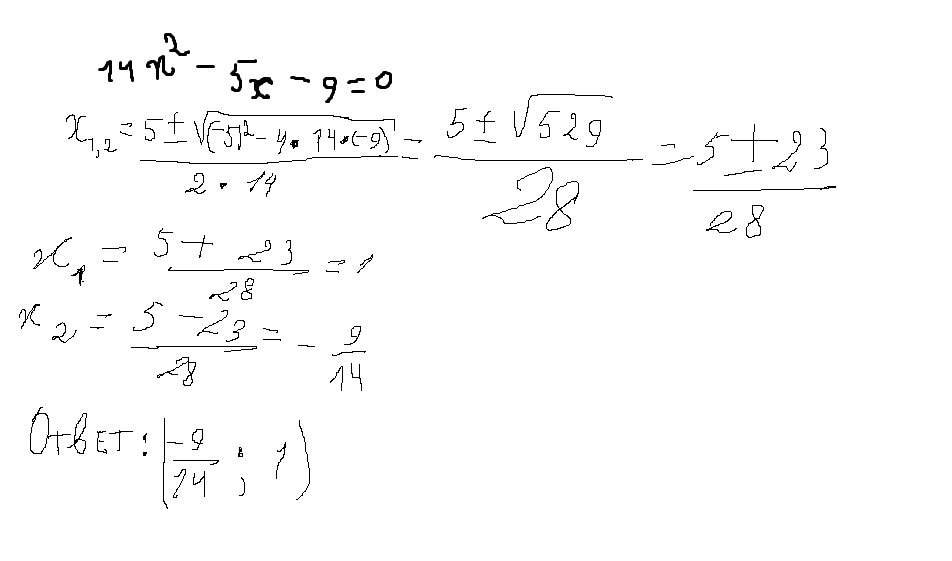 14x² - 5x - 9 = 0
x₁,₂ = (5 ± √((-5)² - 4 • 14 • (-9))) / (2 • 14) = (5 ± √529) / 28 = (5 ± 23) / 28
x₁ = (5 + 23) / 28 = 1
x₂ = (5 - 23) / 28 = - 9/14
Ответ: (-9/14 ; 1)